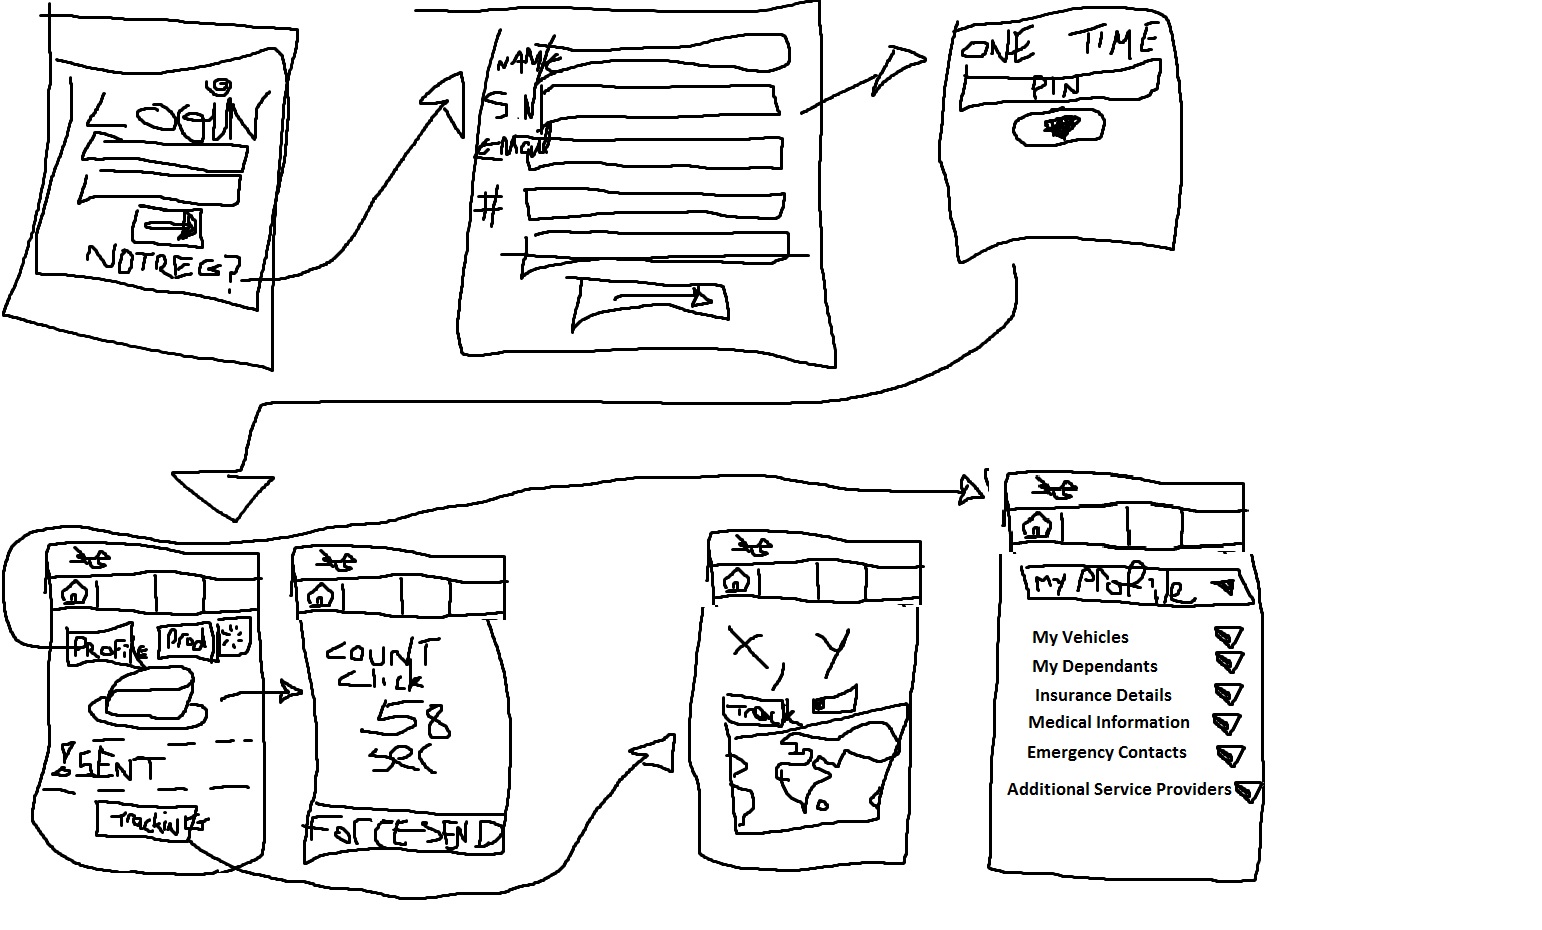 LOGIN
NOTREG?
NAME
S.N
EMail
#
ONE TIME
PIN
PROFiLE
Prod
!SENT
TrackiNG
COUNT
Click
58
SEC
FORCESEND
X, Y
Track
MY PROFile
My Vehicles
My Dependants
Insurance Details
Medical Information
Emergency Contacts
Additional Service Providers